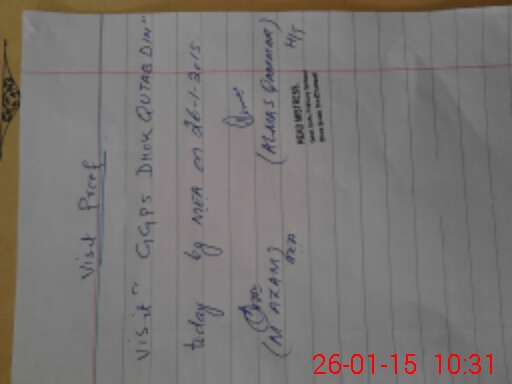 Visit Proof
Visit " GGPS DHOK QUTAB DIN"
today by MEA on 26-1-2015.
(M AZAM)
(ALMAS
H/T
HEAD MISTRESS
26-01-15 10:31